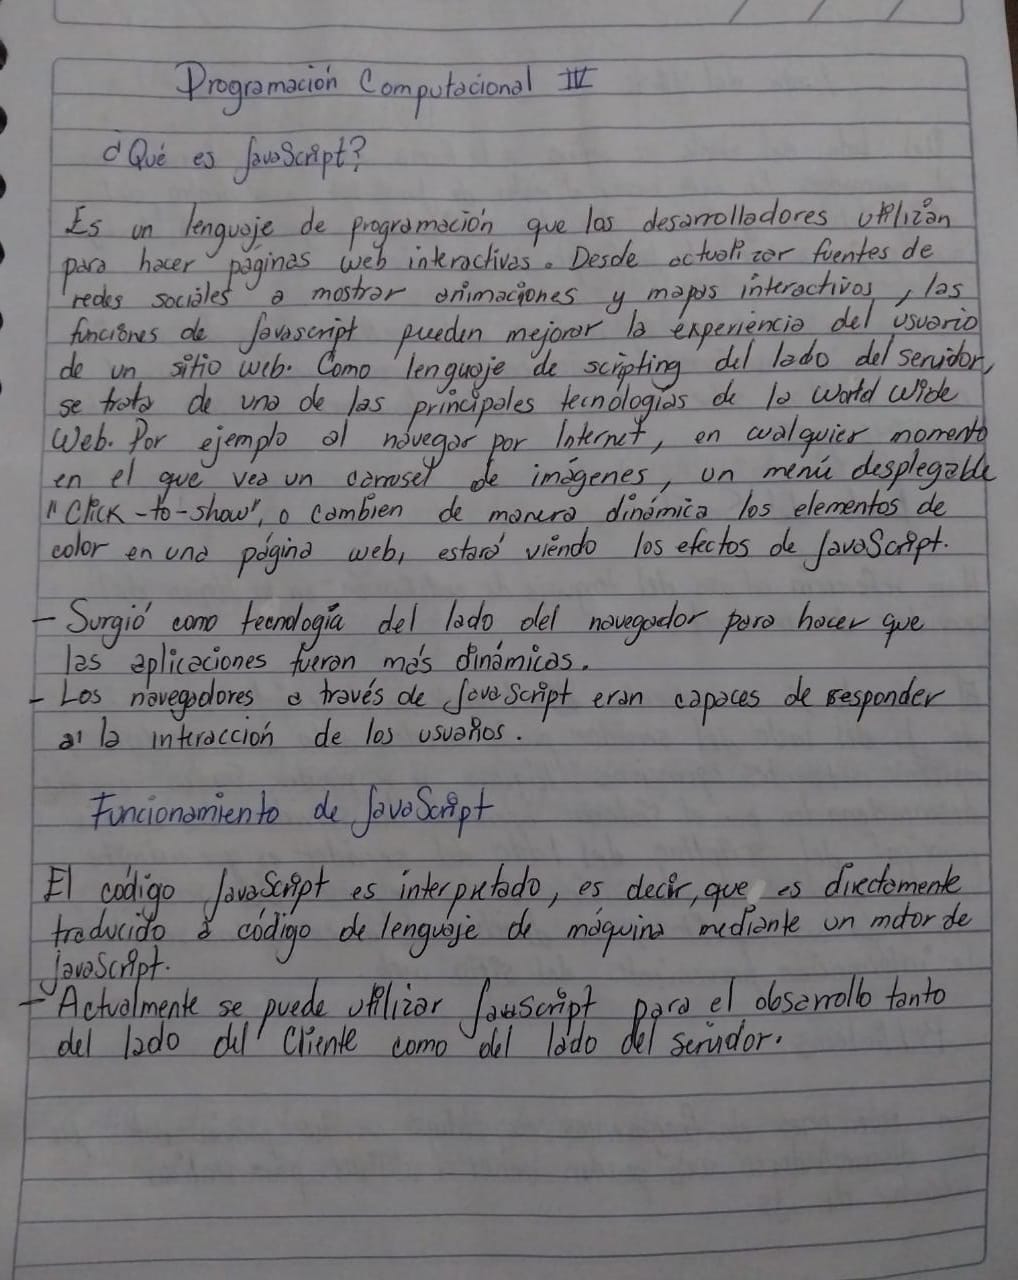 Programación Computacional IV
¿Qué es JavaScript?
Es un lenguaje de programación que los desarrolladores utilizan
para hacer páginas web interactivas. Desde actualizar fuentes de
redes sociales a mostrar animaciones y mapas interactivos, las
funciones de Javascript pueden mejorar la experiencia del usuario
de un sitio web. Como lenguaje de scripting del lado del servidor,
se trata de una de las principales tecnologías de la World Wide
Web. Por ejemplo al navegar por Internet, en cualquier momento
en el que vea un carrusel de imágenes, un menú desplegable
"Click-to-show", o cambien de manera dinámica los elementos de
color en una página web, estará viendo los efectos de JavaScript.
- Surgió como tecnología del lado del navegador para hacer que
las aplicaciones fueran más dinámicas.
- Los navegadores a través de JavaScript eran capaces de responder
a la interacción de los usuarios.
Funcionamiento de JavaScript
El código JavaScript es interpretado, es decir, que es directamente
traducido a código de lenguaje de máquina mediante un motor de
JavaScript.
- Actualmente se puede utilizar JavaScript para el desarrollo tanto
del lado del Cliente como del lado del servidor.